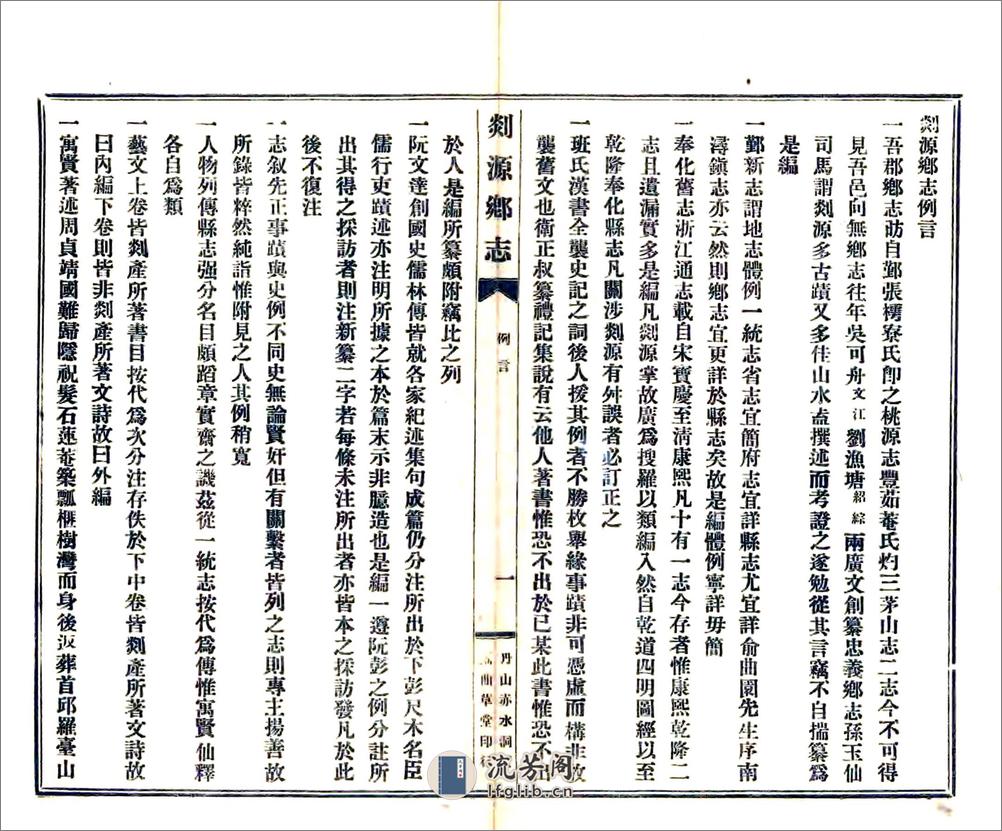 剡源鄉志例言
一吾郡鄉志昉自鄞張樗寮氏卽之桃源志豐茹菴氏灼三茅山志二志今不可得
見吾邑向無鄉志往年吳可舟文江劉漁塘紹綜兩廣文創纂忠義鄉志孫玉仙
司馬謂剡源多古蹟又多佳山水盍撰述而考證之遂勉從其言竊不自揣纂爲
是編
一鄞新志謂地志體例一統志省志宜簡府志宜詳縣志尤宜詳俞曲園先生序南
潯鎭志亦云然則鄉志宜更詳於縣志矣故是編體例寧詳毋簡
一奉化舊志浙江通志載自宋寶慶至淸康熙凡十有一志今存者惟康熙乾隆二
志且遺漏實多是編凡剡源掌故廣爲搜羅以類編入然自乾道四明圖經以至
乾隆奉化縣志凡關涉剡源有舛誤者必訂正之
一班氏漢書全襲史記之詞後人援其例者不勝枚舉緣事蹟非可憑虛而構非故
襲舊文也衛正叔纂禮記集說有云他人著書惟恐不出於已某此書惟恐不出
剡源鄉志
例言
一
丹山赤水洞
曲草堂印行
於人是編所纂頗附竊比之列
一阮文達創國史儒林傳皆就各家紀述集句成篇仍分注所出於下彭尺木名臣
儒行吏蹟述亦注明所據之本於篇末示非臆造也是編一遵阮彭之例分註所
出其得之採訪者則注新纂二字若每條未注所出者亦皆本之採訪發凡於此
後不復注
一志敘先正事蹟與史例不同史無論賢奸但有關繫者皆列之志則專主揚善故
所錄皆粹然純詣惟附見之人其例稍寬
一人物列傳縣志強分名目頗蹈章實齋之譏茲從一統志按代爲傳惟寓賢仙釋
各自爲類
一藝文上卷皆剡產所著書目按代爲次分注存佚於下中卷皆剡產所著文詩故
曰內編下卷則皆非剡產所著文詩故曰外編
一寓賢著述周貞靖國難歸隱祝髮石蓮菴築瓢榧樹灣而身後返葬首邱羅臺山
流芳阁
lfglib.cn